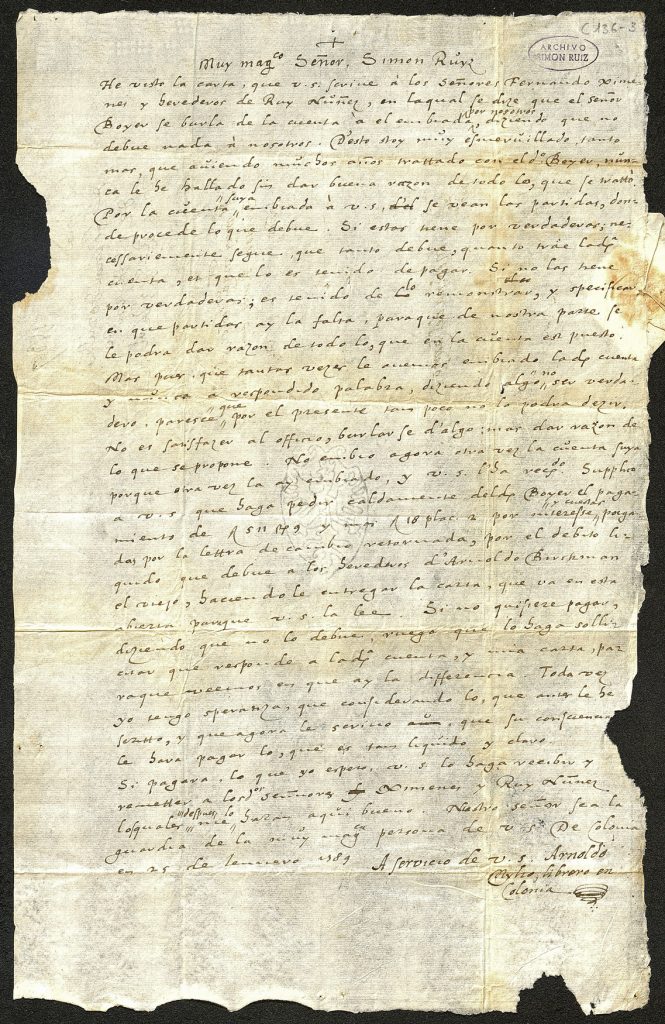 C 136-3
ARCHIVO
SIMON RUIZ
+
Muy mag.co Señor, Simon Ruyz
He visto la carta, que v.s. scriue à los Señores Fernando Xime-
nes y herederos de Ruy Nuñez, en laqual se dize que el señor
Boyer se burla de la cuenta à el embiada por nosotros, diziendo que no
debue nada à nosotros. Desto stoy muy esmeruillado, tanto
mas, que auiendo muchos años trattado con el do. Boyer, nun-
ca le he hallado sin dar buena razon de todo lo, que se trattò
Por la cuenta suya embiada à v.s, se vean las partidas, don-
de procede lo que debue. Si estas tiene por verdaderas; ne-
cessariemente segue, que tanto debue, quanto trãe lada
cuenta, et que lo es tenido de pagar. Si no las tiene
por verdaderas; es tenido de lo remonstrar, y specificar
en que partidas ay la falta, paraque de nostra parte se
le podra dar razon de todo lo, que en la cuenta est puesto.
Mas pues que tantas vezes le auemos embiado lada cuenta
y nunca à respondido palabra, diziendo algo no ser verda-
dero. paresce que por el presente tam poco no lo podra dezir.
No es satisfazer al officio, burlar se d'algo; mas dar razon de
lo que se propone. No embio agora otra vez la cuenta suya
porque otra vez la ay embiado, y v.s. l'ha recdo. Supplico
a v.s que haga pedir caldamente deldo Boyer el paga-
miento de 519 y 18 plac. 2 por interesse y cuestas, paga-
das por la lettra de cambio retornada, por el debito li-
quido que debue a los herederos d'Arnoldo Birckman
el viejo, haciendo le entregar la carta, que va en esta
abierta paraque v.s. la lee. Si no quisiere pagar,
diziendo que no lo debue, ruego que lo haga sollici-
citar que responde a lada cuenta, y mia carta, pa-
raque veemos en que ay la differencia. Toda vez
yo tengo speranza, que considerando lo, que antes le he
scritto, y que agora le scriuo, que su consciencia
le hara pagar lo, que es tam liquido y claro.
Si pagara, lo que yo espero, v.s. lo haga recibir y
remetter a losdos señores Ximenes y Ruy Nuñez
losquales despues lo me haran aqui bueno. Nostro señor sea la
guardia de la muy magca persona de v.s. De Colonia
en 25 de Iennero 1589
A servicio de v.s. Arnoldo
Mylio, librero en
Colonia